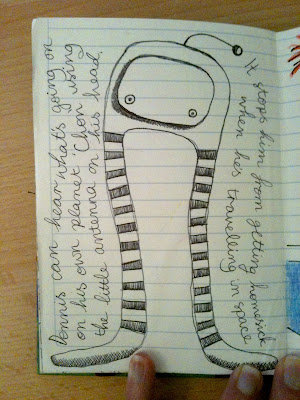 Ponnis can hear what's going on
on his own planet 'Chon' using
the little antenna on his head.
It stops him from getting homesick
when he's travelling in space